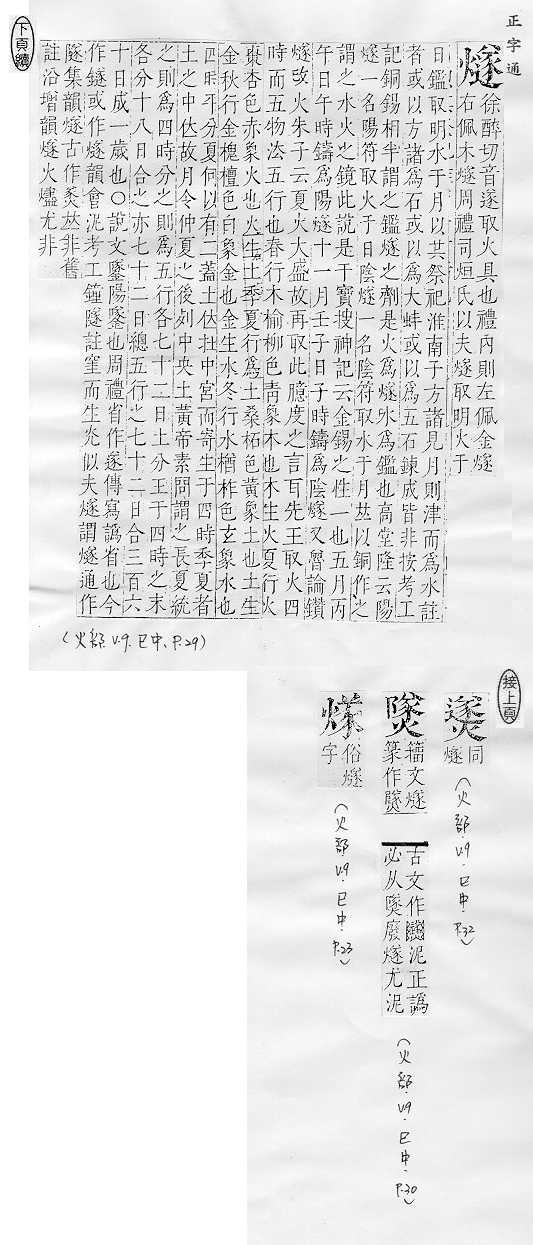 正字通
下頁續
燧
徐醉切音遂取火具也禮內則左佩金燧
右佩木燧周禮司烜氏以夫燧取明火于
日鑑取明水于月以共祭祀淮南子方諸見月則津而爲水註
者或以方諸爲石或以爲大蚌或以爲五石鍊成皆非按考工
記銅錫相半謂之鑑燧之齊是火爲燧氷爲鑑也高堂隆云陽
燧一名陽符取火于日陰燧一名陰符取水于月𠀤以銅作之
謂之水火之鏡此說是干寶搜神記云金錫之性一也五月丙
午日午時鑄爲陽燧十一月壬子日子時鑄爲陰燧又魯論鑽
燧攺火朱子云夏火大盛故再取此臆度之言耳先王取火四
時而五物法五行也春行木榆柳色靑象木也木生火夏行火
棗杏色赤象火也火生土季夏行爲土桑柘色黃象土也土生
金秋行金槐檀色白象金也金生水冬行水楢柞色玄象水也
四時平分夏何以有二蓋土位中宮而寄生于四時季夏者
土之中位故月令仲夏之後列中央土黃帝素問謂之長夏統
之則爲四時分之則爲五行各七十二日土分王于四時之末
各分十八日合之亦七十二日總五行之七十二日合三百六
十日成一歲也○說文䥙陽䥙也周禮省作遂傳寫譌省也今
作鐩或作燧韻會泥考工鐘隧註窐而生光似夫燧謂燧通作
隧集韻燧古作㸂𠀤非舊
註沿增韻燧火燼尤非
(火部.V.9.巳中.P.29)
接上頁
同
燧
(火部.V.9.巳中.P.32)
籀文燧
篆作
古文作泥正譌
必从廢燧尤泥
(火部.V.9.巳中.P.30)
俗燧
字
(火部.V.9.巳中.P.23)